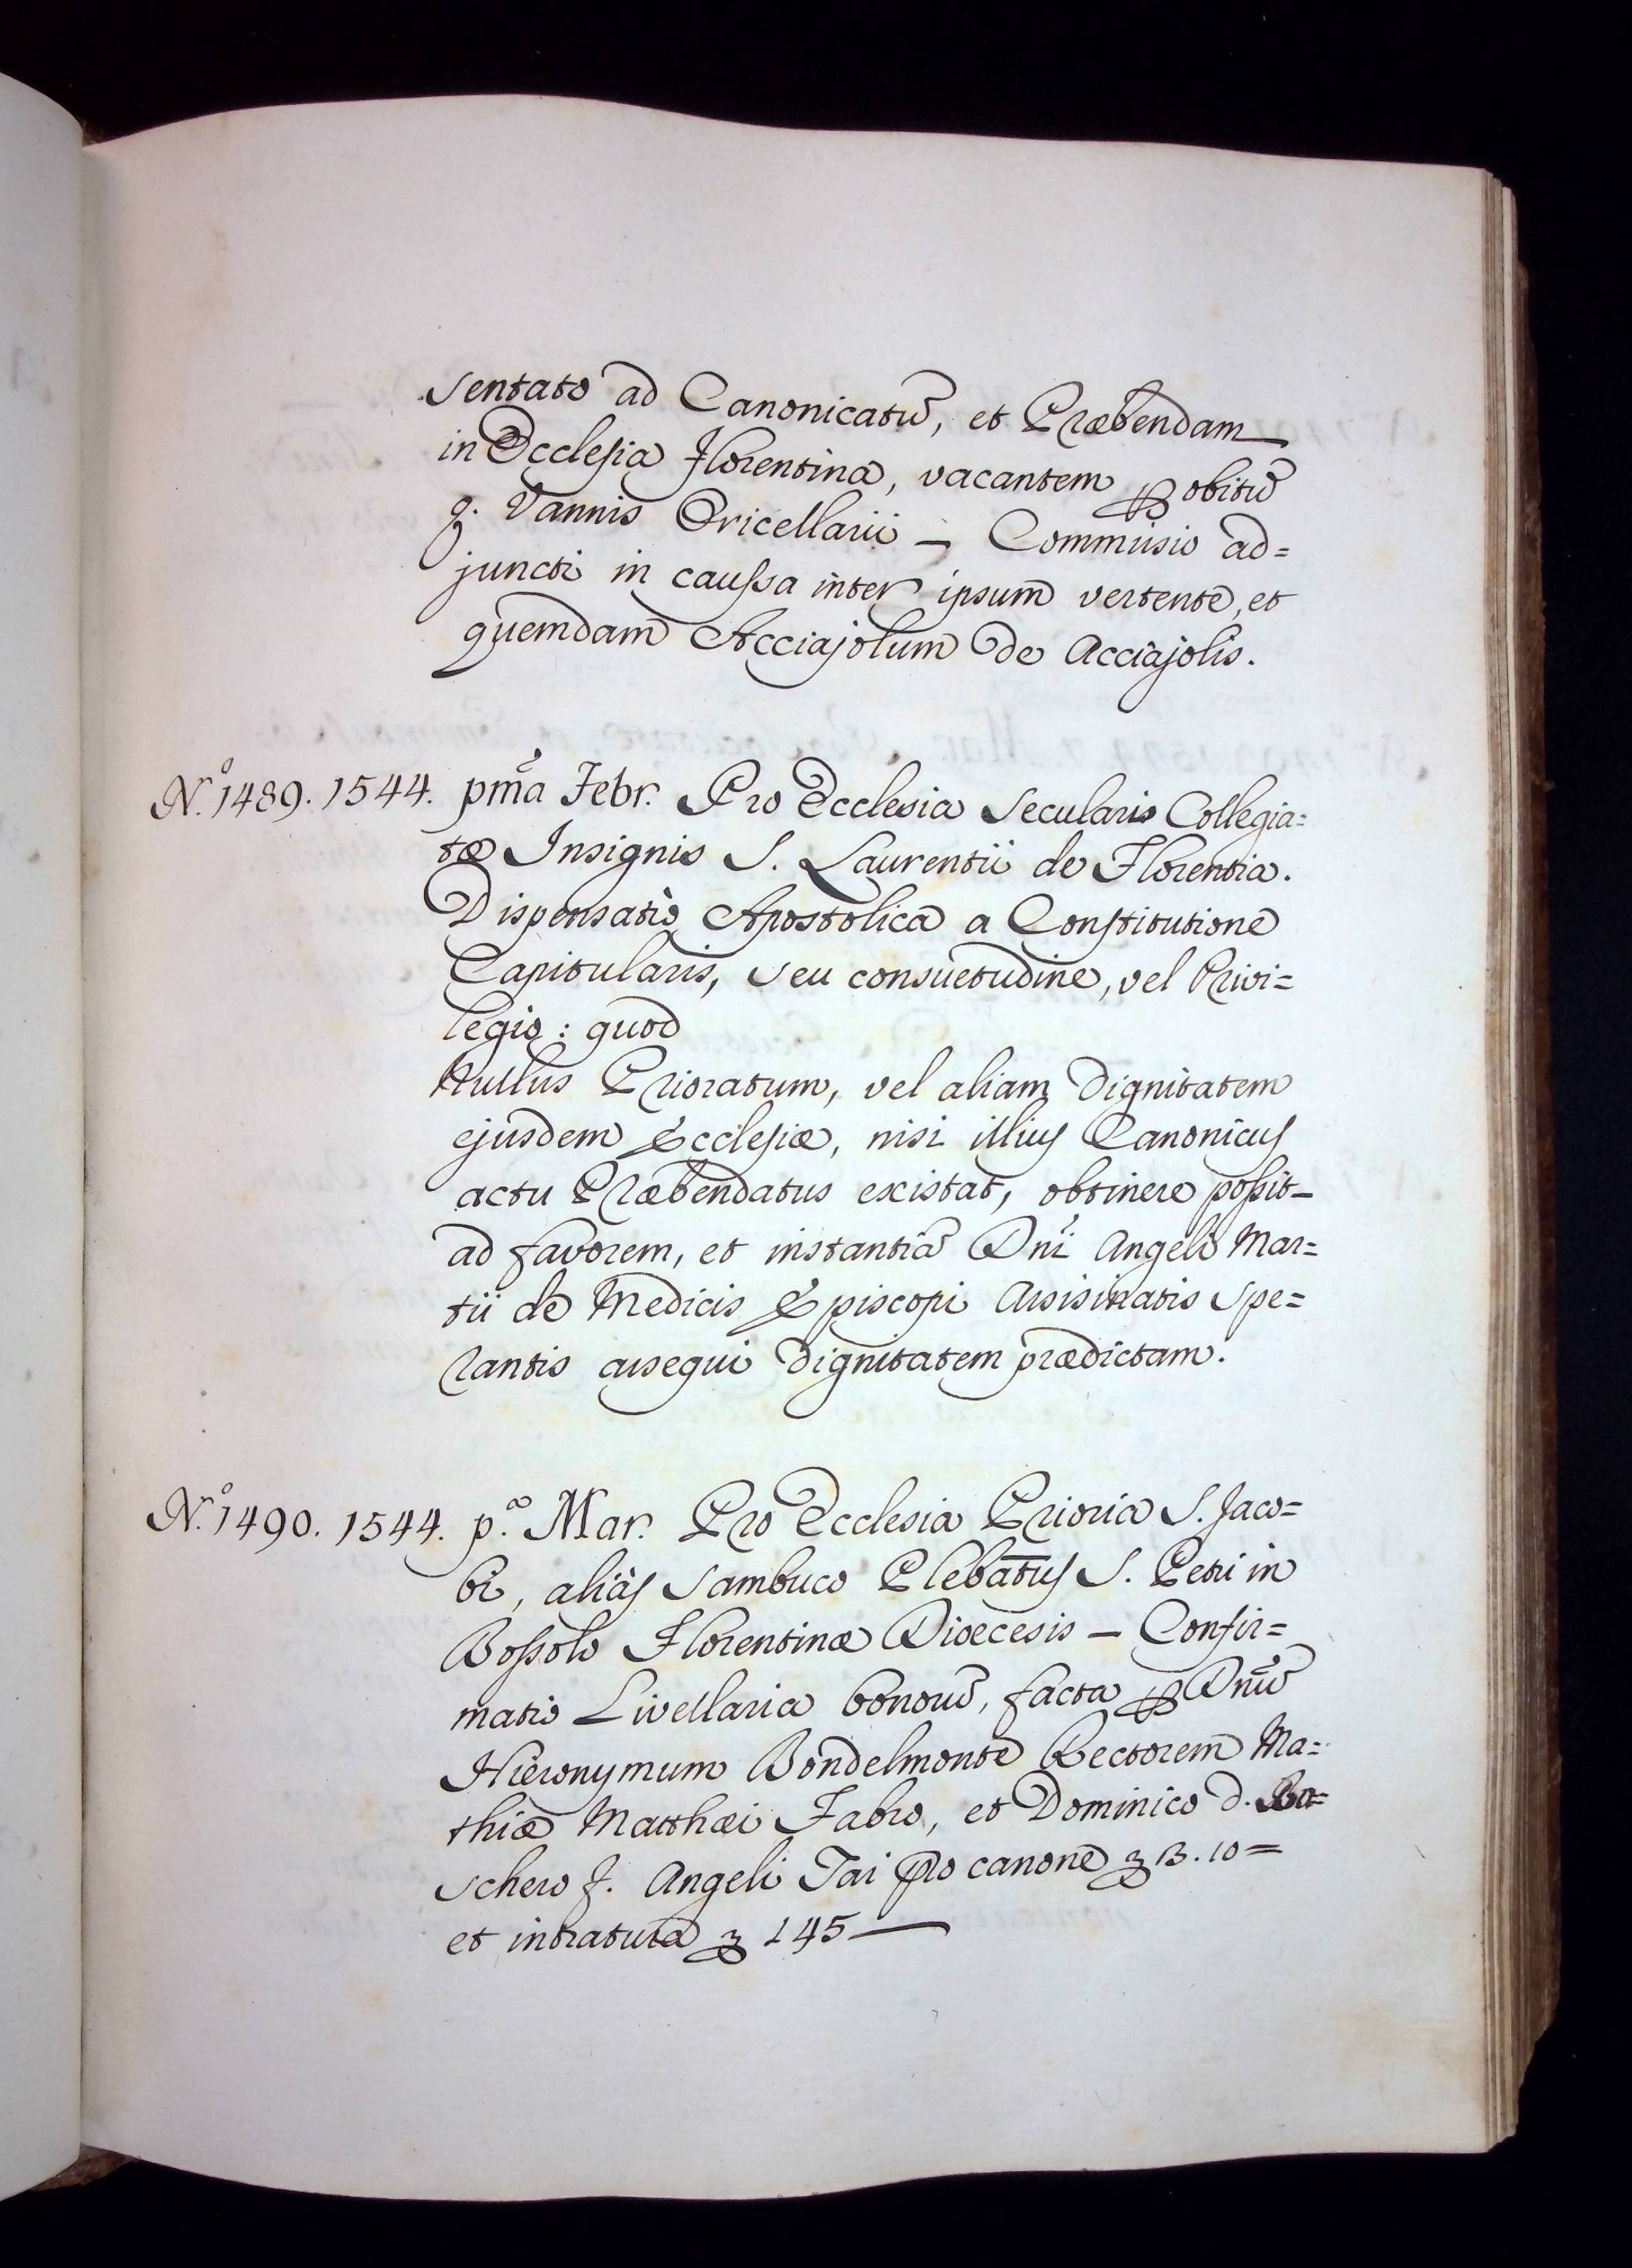 sentato ad Canonicatū, et Præbendam
in Ecclesia Florentina, vacantem ꝑ obitū
q. Vannis Oricellarii — Commissio ad=
juncti in caussa inter ipsum vertente, et
quemdam Acciajolum de Acciajolis.
N.º 1489. 1544. pm̃a Febr. Pro Ecclesia Secularis Collegia=
tæ Insignis S. Laurentii de Florentia.
Dispensatio Apostolica a Constitutione
Capitularis, seu consuetudine, vel Privi=
legio: quod
Nullus Prioratum, vel aliam Dignitatem
ejusdem Ecclesiæ, nisi illius Canonicus
actu Præbendatus existat, obtinere possit —
ad favorem, et instantiā Dnĩ Angeli Mar=
tii de Medicis Episcopi Assisinatis spe=
rantis assequi Dignitatem prædictam.
N.º 1490. 1544. p.ª Mar. Pro Ecclesia Prioria S. Jaco=
bi, aliàs Sambuco Plebatus S. Petri in
Bossolo Florentinæ Dioecesis — Confir=
matio Livellaria bonorū, facta ꝑ Dnū
Hieronymum Bondelmonte Rectorem Ma=
thiæ Matthæi Fabro, et Dominico d.
schero f. Angeli Tai pro canone 13.10=
et intratura 145 —